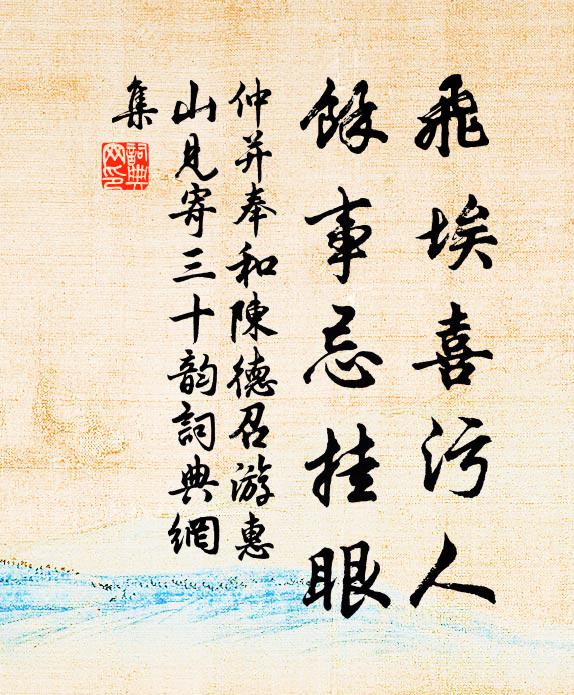 飛埃喜污人
餘事忌挂眼
仲并奉和陳德召游惠
山見寄三十韵詞典網
集
詞典網印